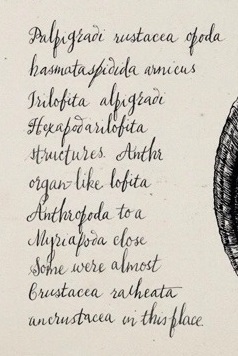 Palpigradi rustacea opoda
hasmataspidida arnicus
Trilofita alpigradi
Hexapodarilofita
structures. Anthr
organ-like lofita
Anthropoda to a
Myriapoda close
Some were almost
Crustacea ratheata
uncrustacea in this place